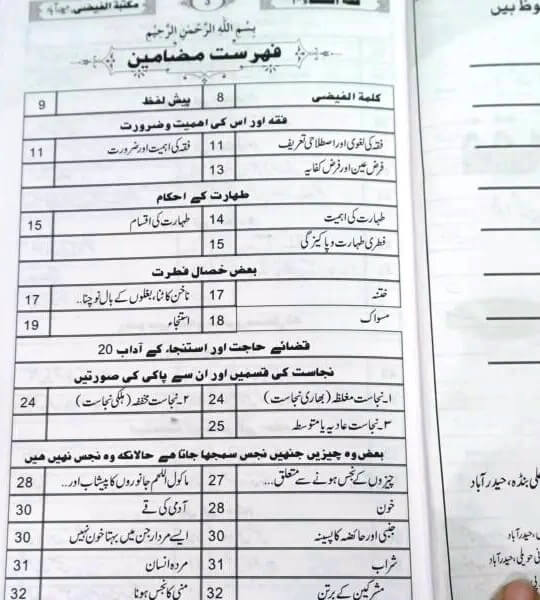 مکتبة الفیضی، حیدرآباد
3
بِسْمِ اللّٰهِ الرَّحْمٰنِ الرَّحِيْمِ
فہرست مضامین
کلمة الفیضی 8 پیش لفظ 9
فقہ اور اس کی اہمیت وضرورت
فقہ کی لغوی اور اصطلاحی تعریف 11 فقہ کی اہمیت اور ضرورت 11
فرض عین اور فرض کفایہ 13
طہارت کے احکام
طہارت کی اہمیت 14 طہارت کی اقسام 15
فطری طہارت و پاکیزگی 15
بعض خصال فطرت
ختنہ 17 ناخن کاٹنا، بغلوں کے بال نوچنا.. 17
مسواک 18 استنجاء 19
قضائے حاجت اور استنجاء کے آداب 20
نجاست کی قسمیں اور ان سے پاکی کی صورتیں
۱۔ نجاست مغلظہ (بھاری نجاست) 24 ۲۔ نجاست مخففہ (ہلکی نجاست) 24
۳۔ نجاست عادیہ یا متوسطہ 25
بعض وہ چیزیں جنہیں نجس سمجھا جاتا ہے حالانکہ وہ نجس نہیں ہیں
چیزوں کے نجس ہونے سے متعلق... 27 ماکول اللحم جانوروں کا پیشاب اور... 28
خون 28 آدمی کی قے 30
جنبی اور حائضہ کا پسینہ 30 ایسے مردار جن میں بہتا خون نہیں 30
شراب 31 مردہ انسان 31
مشرکین کے برتن 32 منی کا نجس ہونا 32
وظ ہیں
علی بنڈہ، حیدرآباد
، حیدرآباد
نی حویلی، حیدرآباد